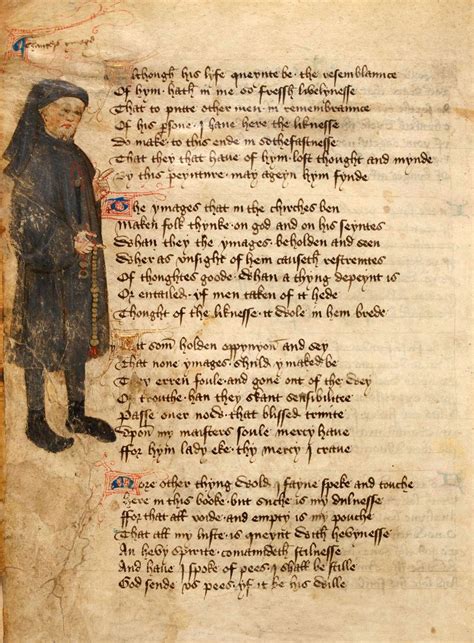 Chaucers ymage
Although his lyfe queynte be · the resemblaunce
Of hym · hath in me so fressh lyvelynesse
That to putte other men in remembraunce
Of his persone · I have here the liknesse
Do make · to this ende in sothefastnesse
That they that have of hym · lost thought and mynde
By this peynture · may ageyn hym fynde
The ymages that in the chirches ben
Maken folk thynke · on god and on his seyntes
Whan they the ymages · beholden and seen
Wher as unsight of hem causeth restreintes
Of thoughtes goode · Whan a thyng depeynt is
Or entailed · yf men taken of it hede
Thought of the liknesse · it wole in hem brede
Yit som holden oppynyon and sey
That none ymages · shuld ymaked be
They erren foule · and gone out of the wey
Of trouthe · han they skant sensibilitee
Passe over nowe · that blissed trinite
Upon my maisters soule mercy have
ffor hym lady eke · thy mercy I crave
More other thyng · wold I fayne speke and touche
Here in this booke · but suche is my dulnesse
ffor that all voide · and empty is my pouche
That all my luste · is queynt with hevynesse
An hevy spirite · comaundeth stilnesse
And have I spoke of pees · I shall be stille
God sende us pees · yf it be his wille